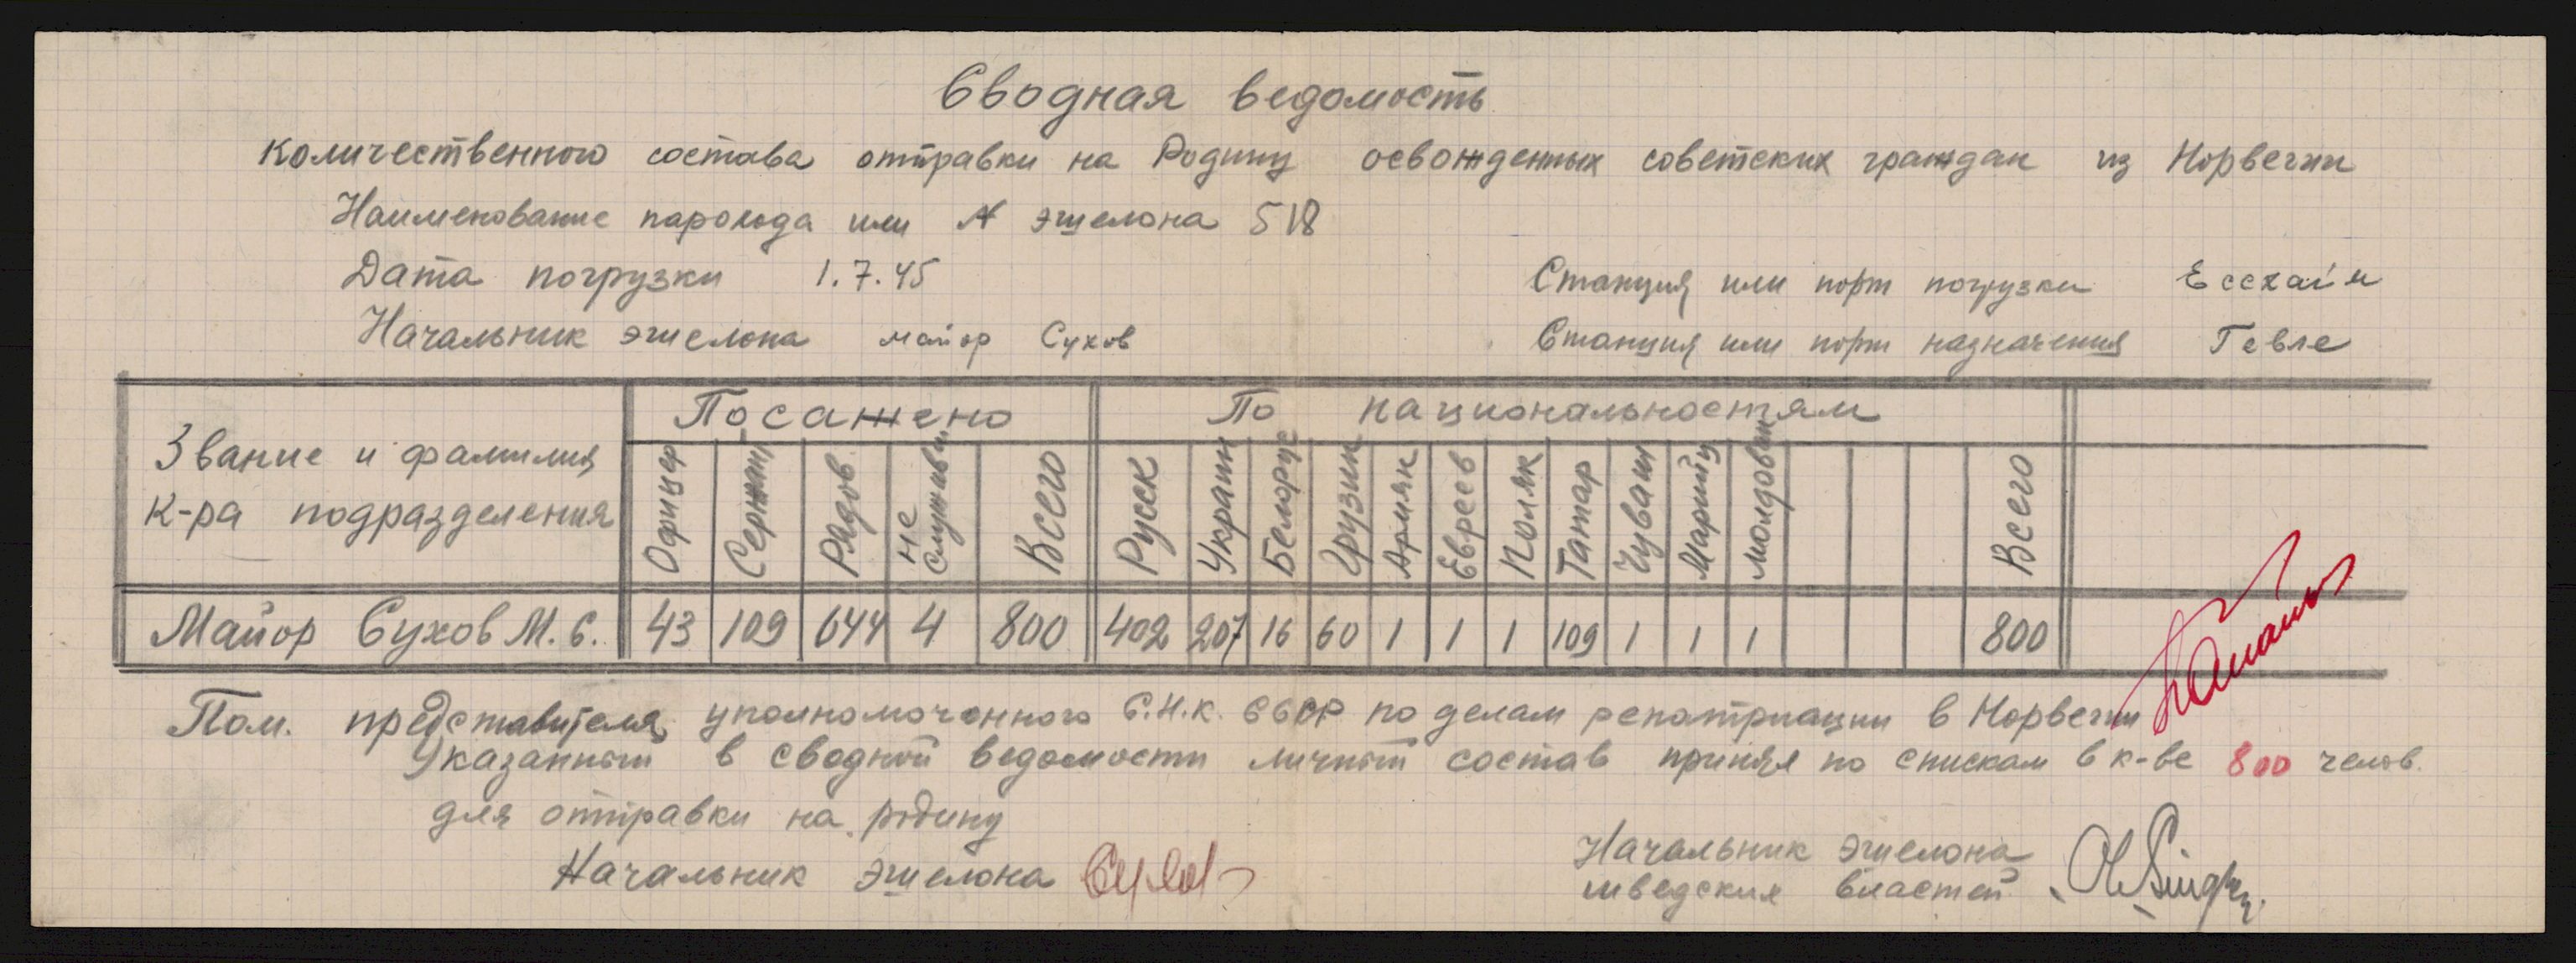 Сводная ведомость
количественного состава отправки на Родину освобожденных советских граждан из Норвегии
Наименование парохода или № эшелона 518
Дата погрузки 1.7.45 Станция или порт погрузки Ессхайм
Начальник эшелона майор Сухов Станция или порт назначения Гевле
Звание и фамилия к-ра подразделения Посажено По национальностям
Офицер Сержант Рядов. не служивш. Всего Русск Украин Белорус Грузин Армян Евреев Поляк Татар Чуваш Марийц Молдован Всего
Майор Сухов М.С. 43 109 644 4 800 402 207 16 60 1 1 1 109 1 1 1 800
Пом. представителя уполномоченного С.Н.К. СССР по делам репатриации в Норвегии
Указанный в сводной ведомости личный состав принял по спискам в к-ве 800 челов.
для отправки на родину
Начальник эшелона Сухов
Начальник эшелона
шведских властей